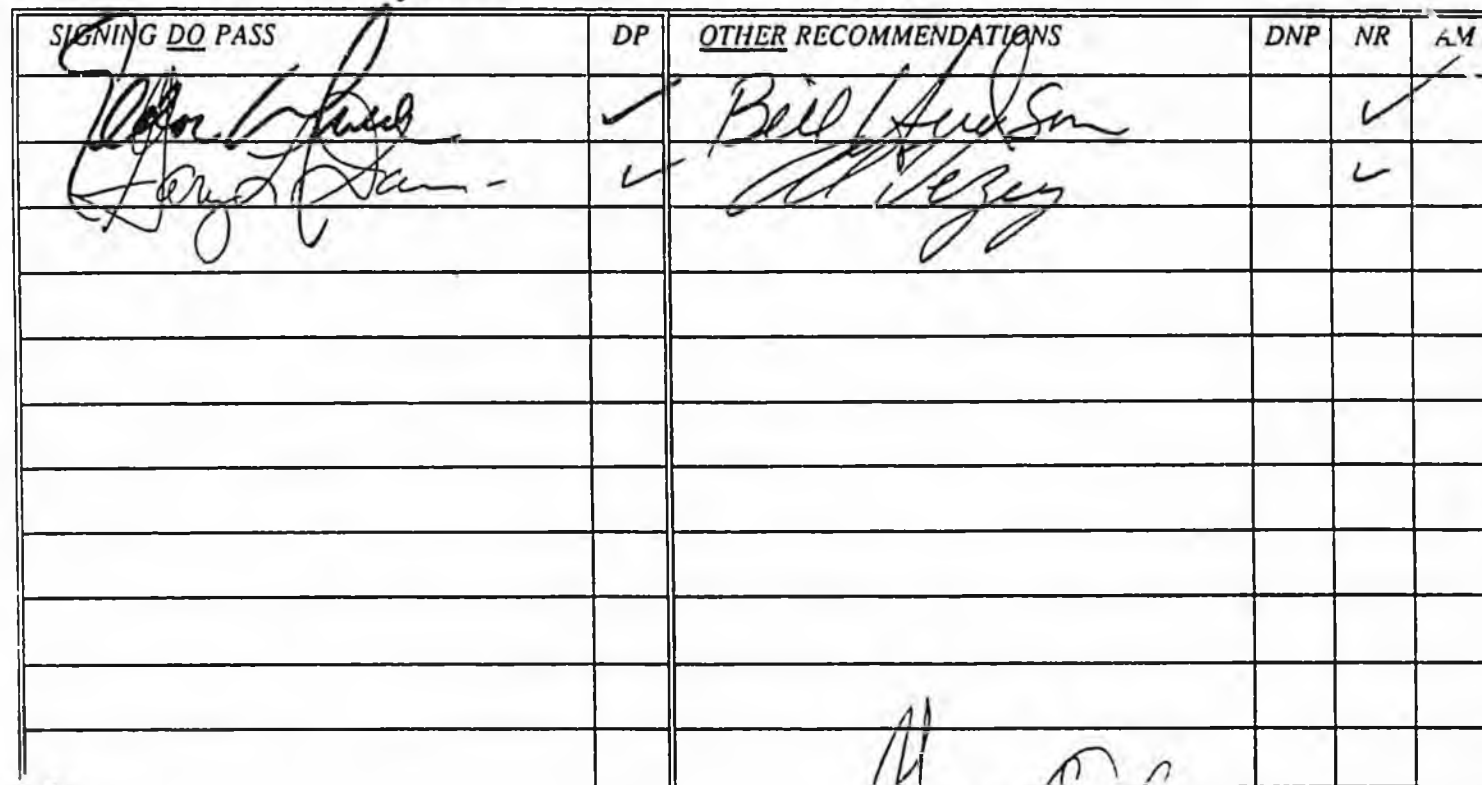 SIGNING DO PASS DP OTHER RECOMMENDATIONS DNP NR AM
✓ Bill Hudson ✓
Gary L ✓ Al Vezey ✓